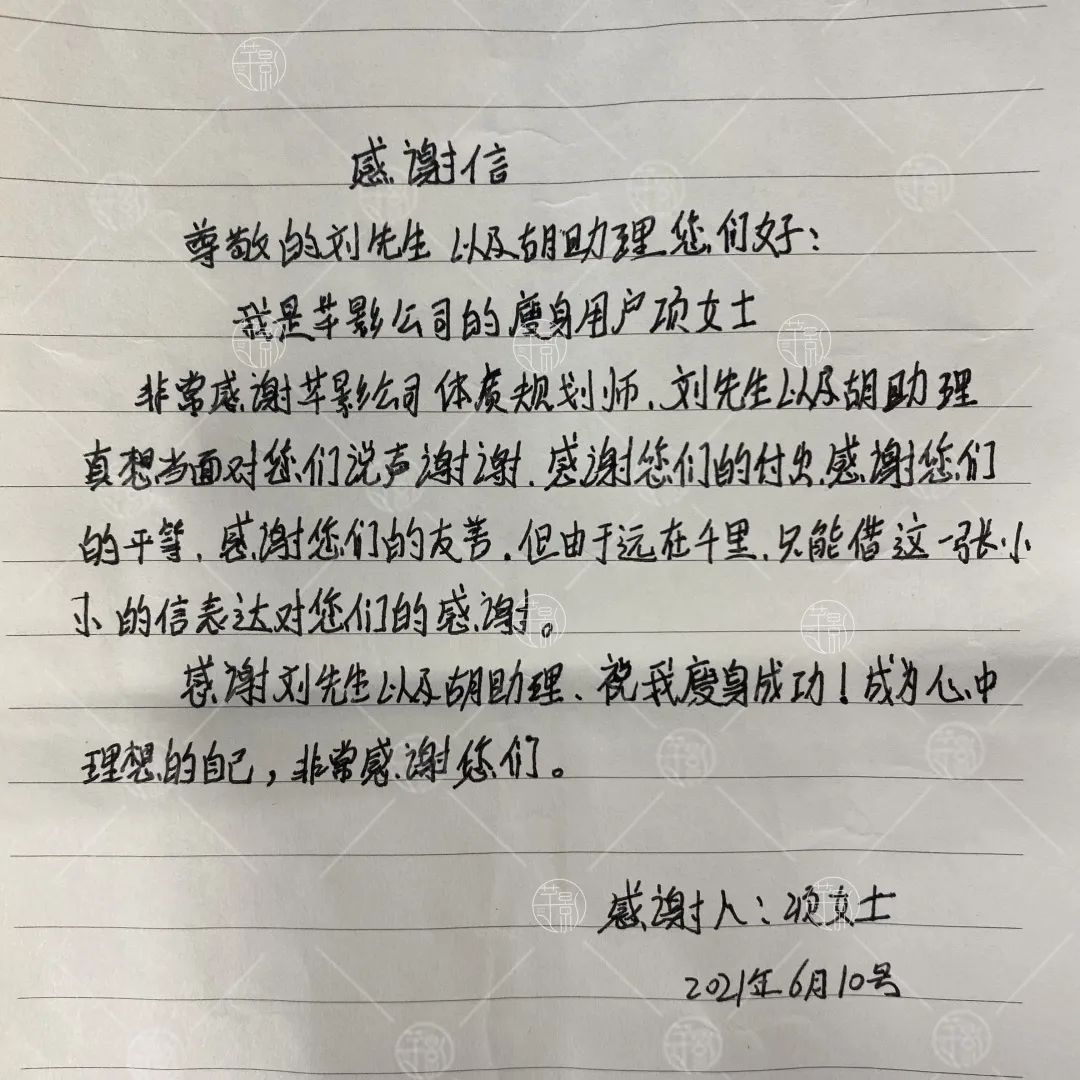 感谢信
尊敬的刘先生以及胡助理您们好：
我是苹影公司的瘦身用户项女士
非常感谢苹影公司体质规划师、刘先生以及胡助理
真想当面对您们说声谢谢、感谢您们的付出、感谢您们
的平等、感谢您们的友善。但由于远在千里、只能借这一张小
小的信表达对您们的感谢。
感谢刘先生以及胡助理、祝我瘦身成功！成为心中
理想的自己，非常感谢您们。
感谢人：项女士
2021年6月10号